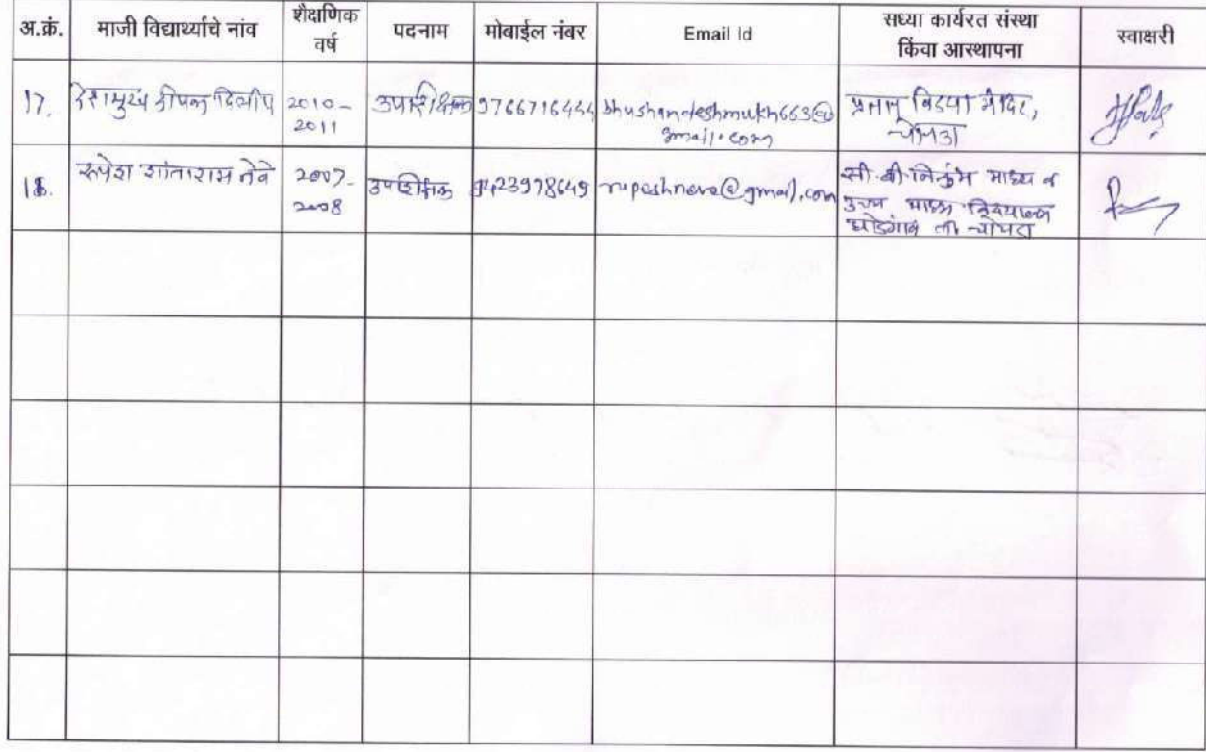 अ.क्रं. माजी विद्यार्थ्याचे नांव शैक्षणिक वर्ष पदनाम मोबाईल नंबर Email Id सध्या कार्यरत संस्था किंवा आस्थापना स्वाक्षरी
17. देशमुख दीपक दिलीप 2010- उपशिक्षक 9766716444 bhushandeshmukh663@ विद्या मंदिर,
2011 gmail.com चोपडा
18. रुपेश शांताराम नेवे 2007- उपशिक्षक 9423978649 rupeshneve@gmail.com सी.बी.निकुंभ माध्य व
2008 उच्च माध्य विद्यालय
घोडगांव ता चोपडा